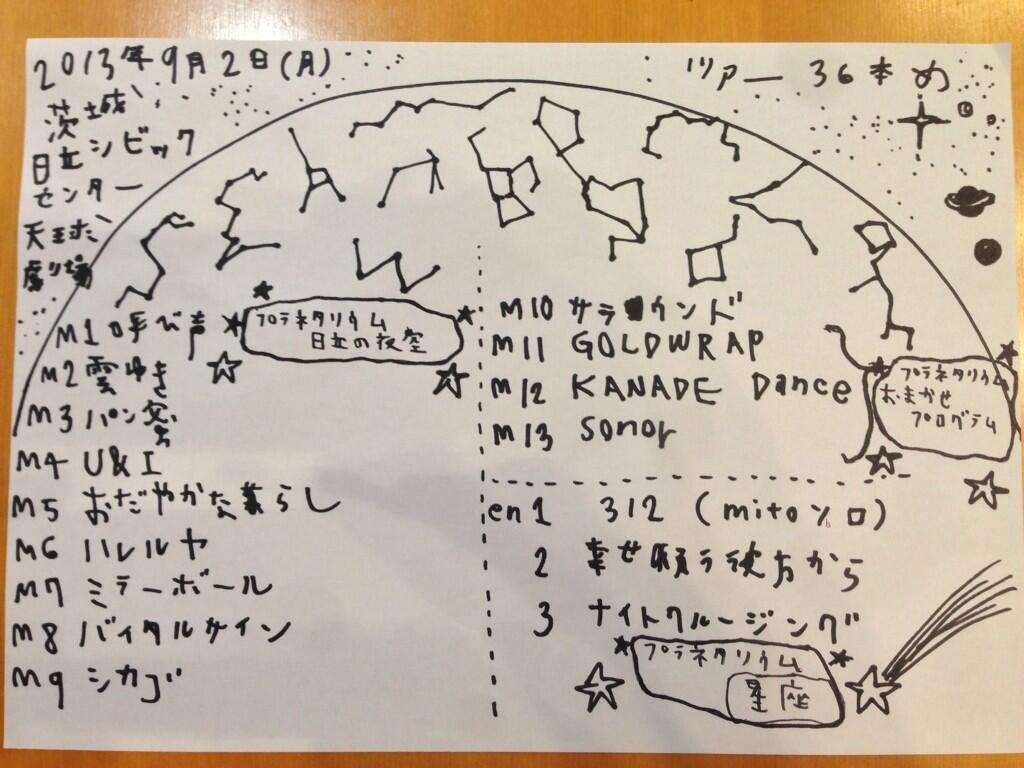 2013年9月2日(月)
ツアー 36本め
茨城
日立シビック
センター
天球
劇場
M1 呼び声
M2 雲ゆき
M3 パン窯
M4 U&I
M5 おだやかな暮らし
M6 ハレルヤ
M7 ミラーボール
M8 バイタルサイン
M9 シカゴ
プラネタリウム
日立の夜空
M10 サラウンド
M11 GOLDWRAP
M12 KANADE Dance
M13 sonor
プラネタリウム
おまかせ
プログラム
en1 312 (mitoソロ)
2 幸せ願う彼方から
3 ナイトクルージング
プラネタリウム
星座